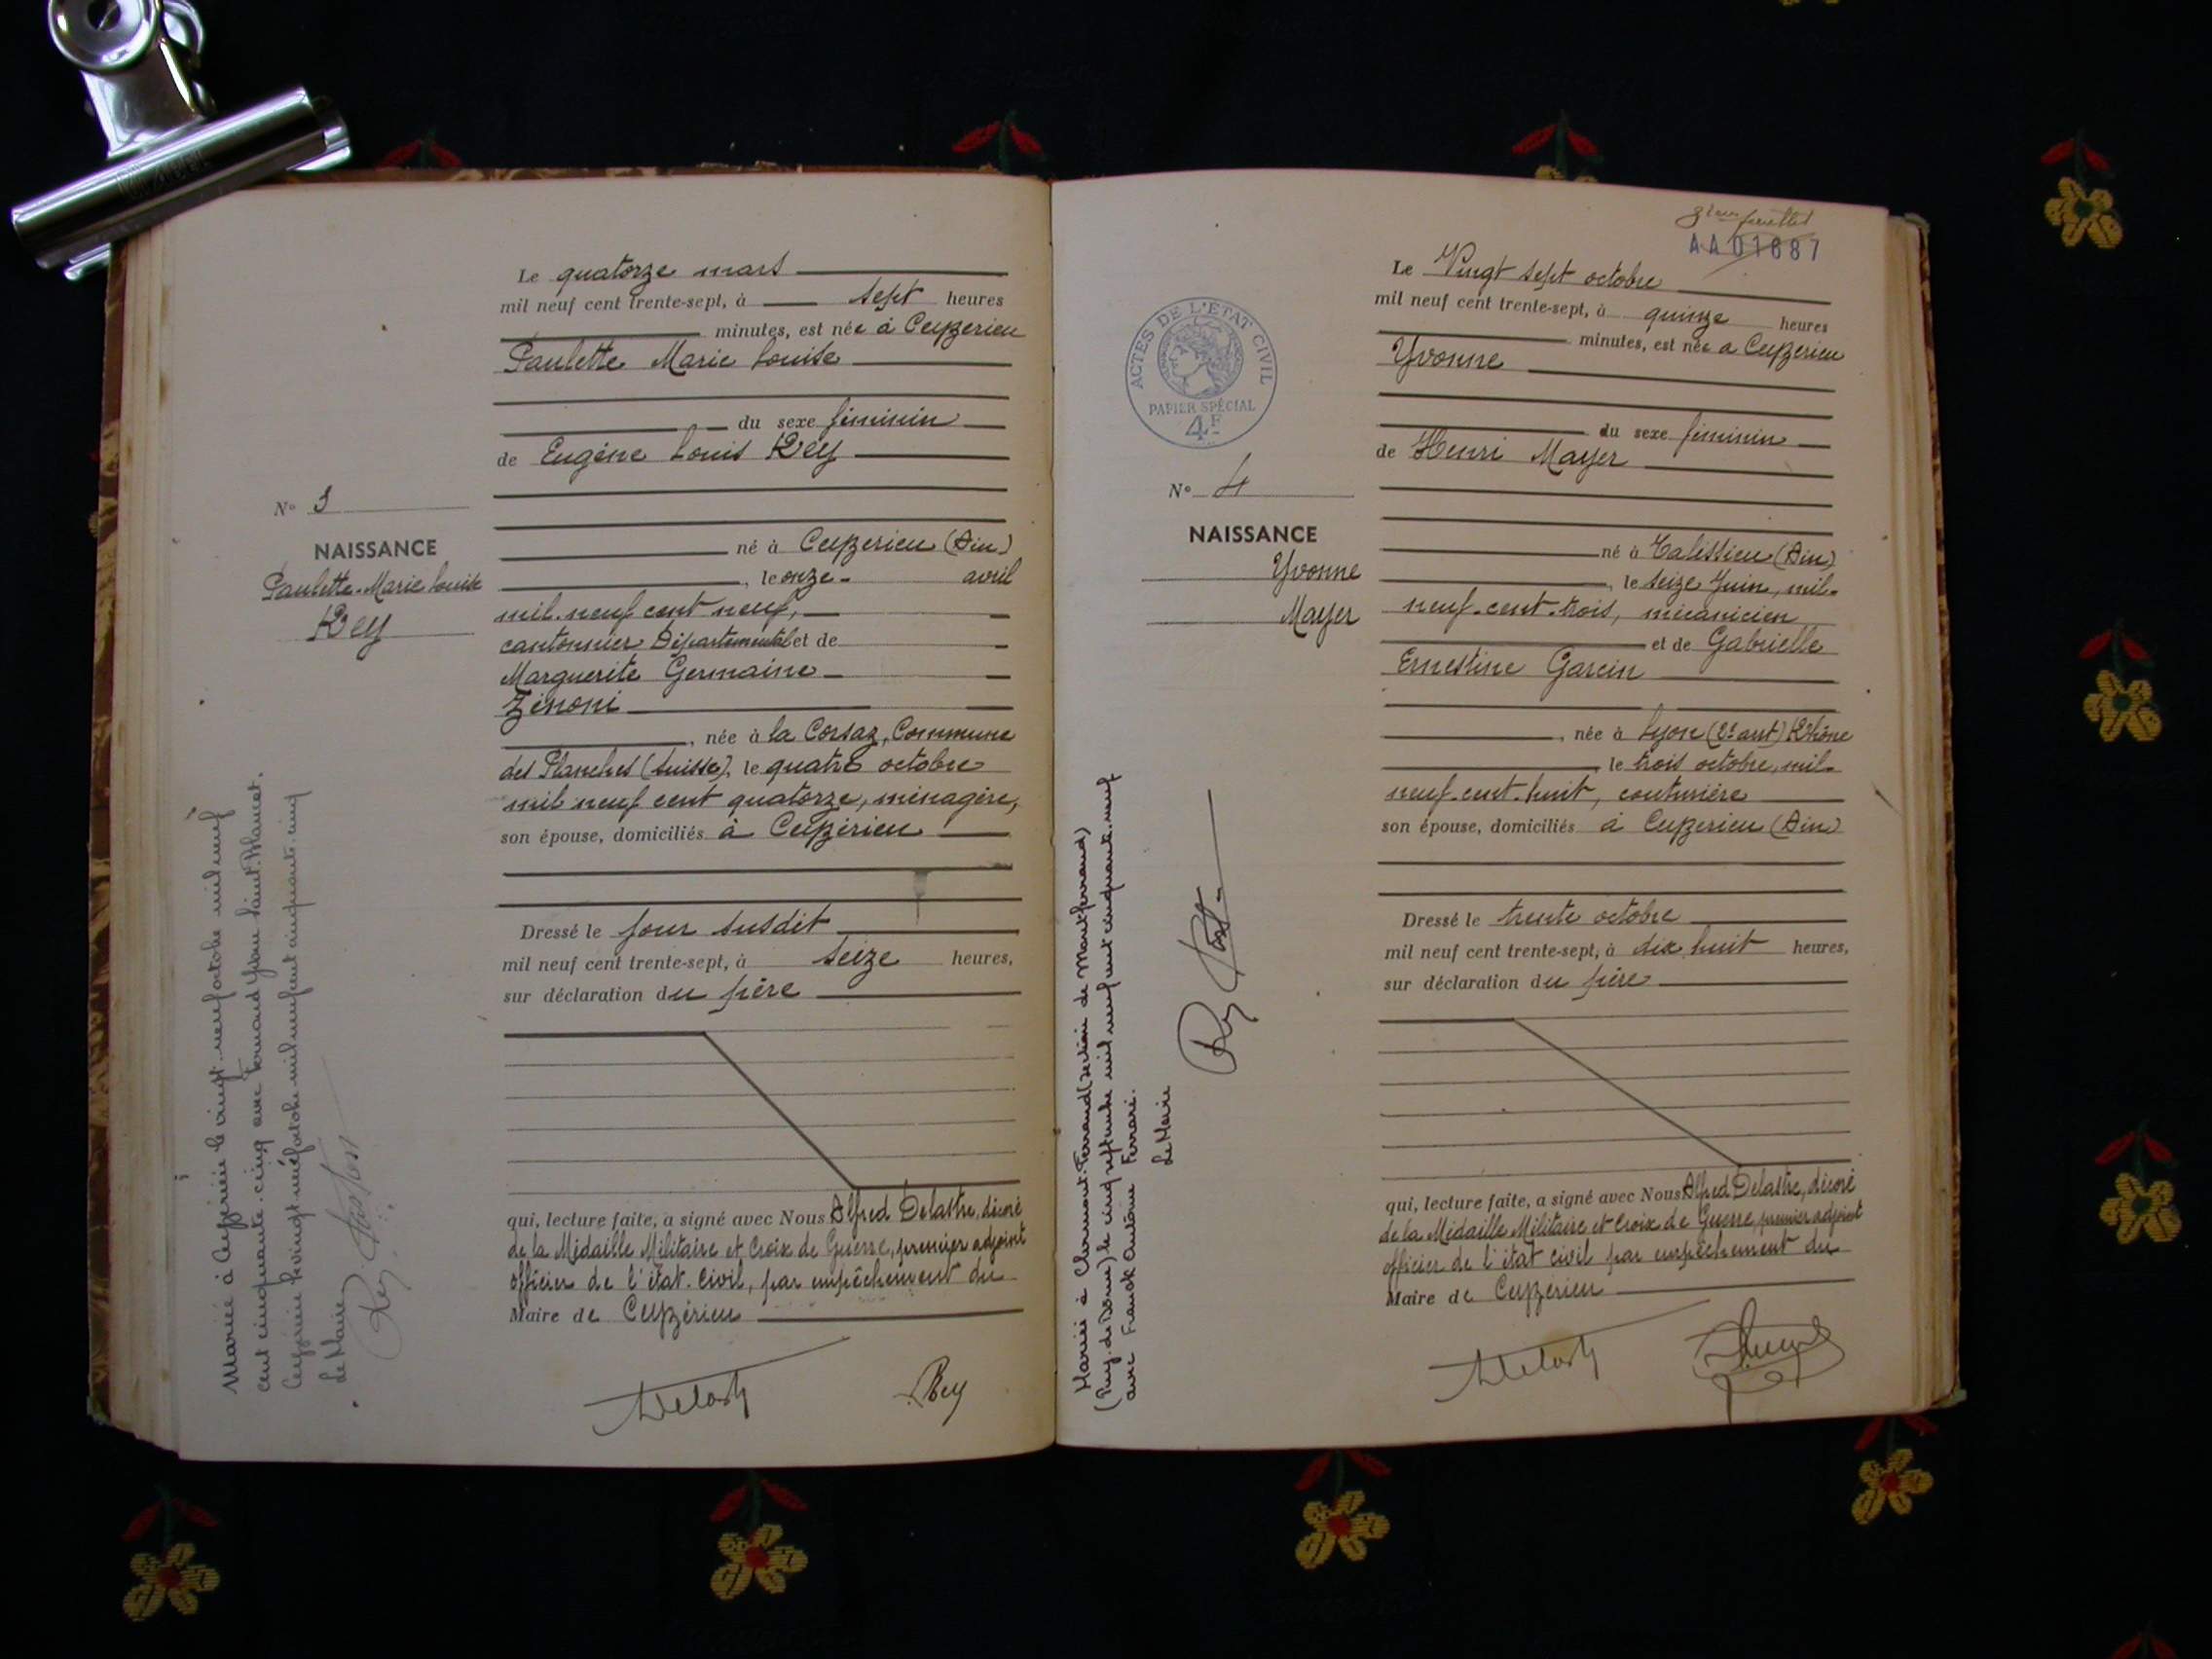 Le quatorze mars
mil neuf cent trente-sept, à sept heures
minutes, est née à Ceyzerieu
Paulette Marie Louise
du sexe féminin
de Eugène Louis Rey
N° 3
NAISSANCE
Paulette-Marie Louise
Rey
né à Ceyzerieu (Ain)
, le onze - avril
mil-neuf cent neuf,
cantonnier Départemental et de
Marguerite Germaine
Zénoni
, née à la Corsaz, Commune
des Planches (Suisse), le quatre octobre
mil neuf cent quatorze, ménagère,
son épouse, domiciliés à Ceyzérieu
Dressé le jour susdit
mil neuf cent trente-sept, à seize heures,
sur déclaration du père
qui, lecture faite, a signé avec Nous Alfred Delastre, décoré
de la Médaille Militaire et Croix de Guerre, premier adjoint
officier de l'état-civil, par empêchement du
Maire de Ceyzérieu
Rey
Mariée à Ceyzérieu le vingt-neuf octobre mil neuf
cent cinquante-cinq avec Fernand Yvan
Ceyzérieu le vingt-neuf octobre mil neuf cent cinquante-cinq
Le Maire
AA01687
Le Vingt sept octobre
mil neuf cent trente-sept, à quinze heures
minutes, est née à Ceyzerieu
Yvonne
du sexe féminin
de Henri Mayer
ACTES DE L'ETAT CIVIL
PAPIER SPÉCIAL
4F
N° 4
NAISSANCE
Yvonne
Mayer
né à Talissieu (Ain)
, le seize Juin, mil-
neuf-cent-trois, mécanicien
et de Gabrielle
Ernestine Garcin
, née à Lyon (2e arrt) Rhône
le trois octobre, mil-
neuf-cent-huit, couturière
son épouse, domiciliés à Ceyzerieu (Ain)
Dressé le trente octobre
mil neuf cent trente-sept, à dix huit heures,
sur déclaration du père
qui, lecture faite, a signé avec Nous Alfred Delastre, décoré
de la Médaille Militaire et Croix de Guerre, premier adjoint
officier de l'état civil par empêchement du
Maire de Ceyzérieu
Mariée à Clermont-Ferrand (section de Montferrand)
(Puy-de-Dôme) le cinq septembre mil neuf cent cinquante-neuf
avec Franck Antoine Ferrari.
Le Maire